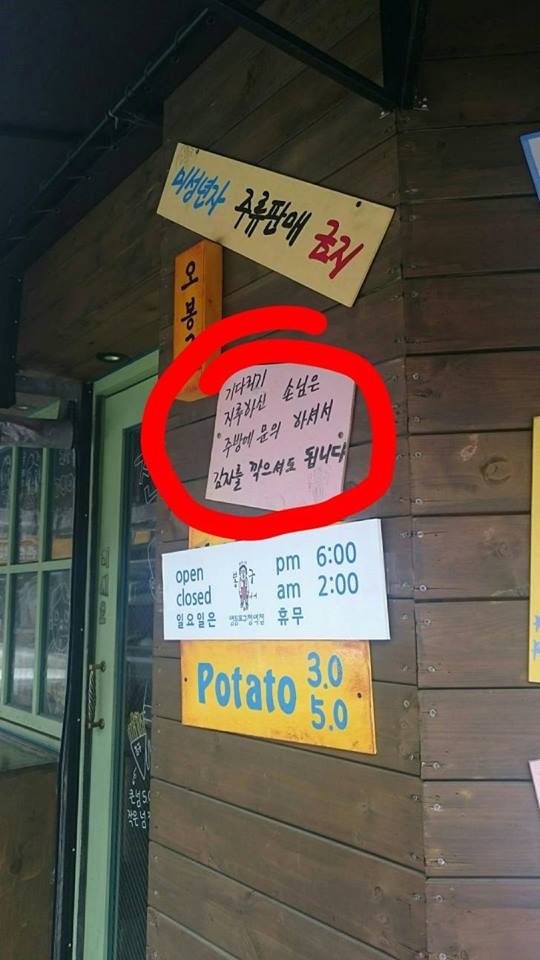 미성년자 주류판매 금지
오봉
기다리기
지루하신 손님은
주방에 문의 하셔서
감자를 깍으셔도 됩니다
open pm 6:00
closed am 2:00
일요일은 휴무
봉구
Potato 3.0
5.0
큰넘 5.0
작은넘